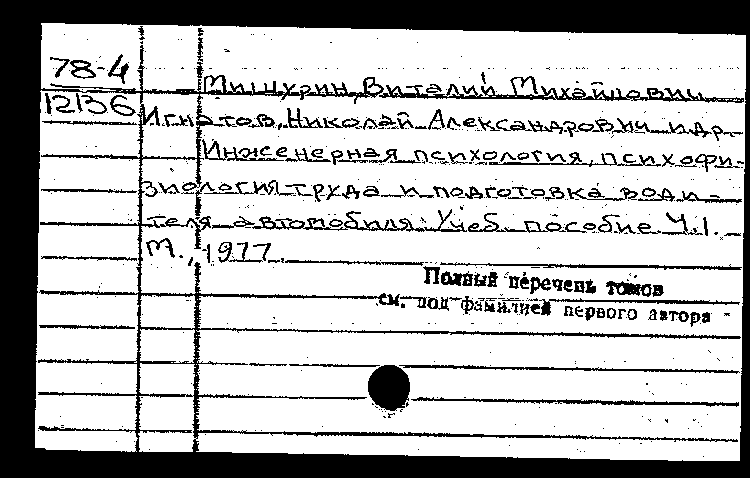 78-4
12136
Мишурин, Виталий Михайлович
Игнатов, Николай Александрович и др.
Инженерная психология, психофи-
зиология труда и подготовка води-
теля автомобиля: Учеб. пособие Ч.1.
М., 1977.
Полный перечень томов
см. под фамилией первого автора